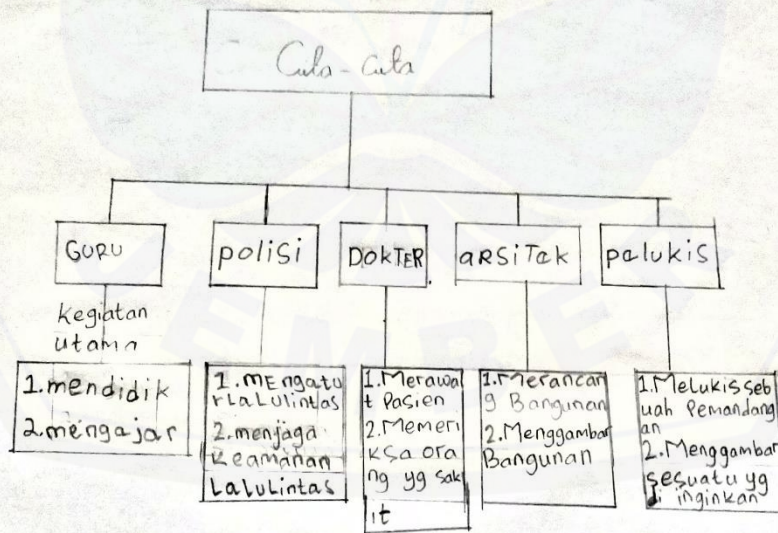 Cita-cita
GURU
polisi
DOKTER.
aRSiTek
pelukis
kegiatan
utama
1.mendidik
2.mengajar
1.mEngatu
rLaLulintas
2.menjaga
Keamanan
LaLuLintas
1.Merawa
t Pasien
2.Memeri
ksa ora
ng yg sak
it
1.Merancan
g Bangunan
2.Menggambar
Bangunan
1.Melukis seb
uah Pemandang
an
2.Menggambar
sesuatu yg
di inginkan
JEMBER